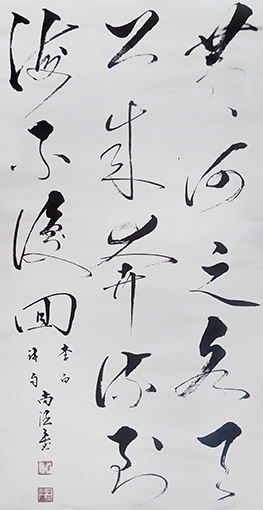 黄河之水天
上来奔流到
海不復回
李白
詩句